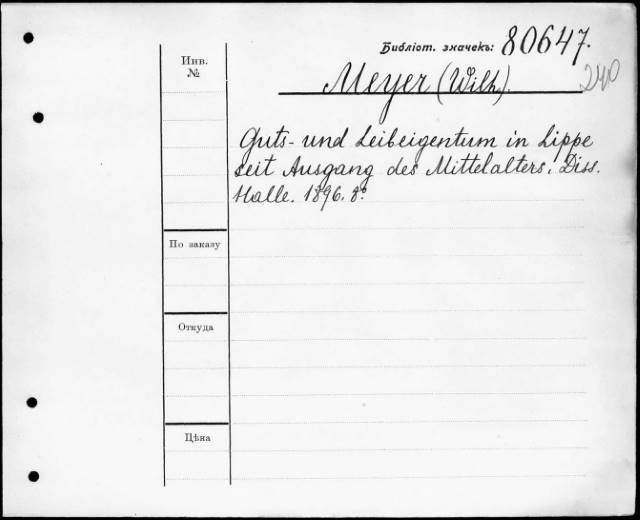 Библіот. значекъ: 80647.
Инв.
№
Meyer (Wilh).
240
Guts- und Leibeigentum in Lippe
seit Ausgang des Mittelalters. Diss.
Halle. 1896. 8º
По заказу
Откуда
Цѣна